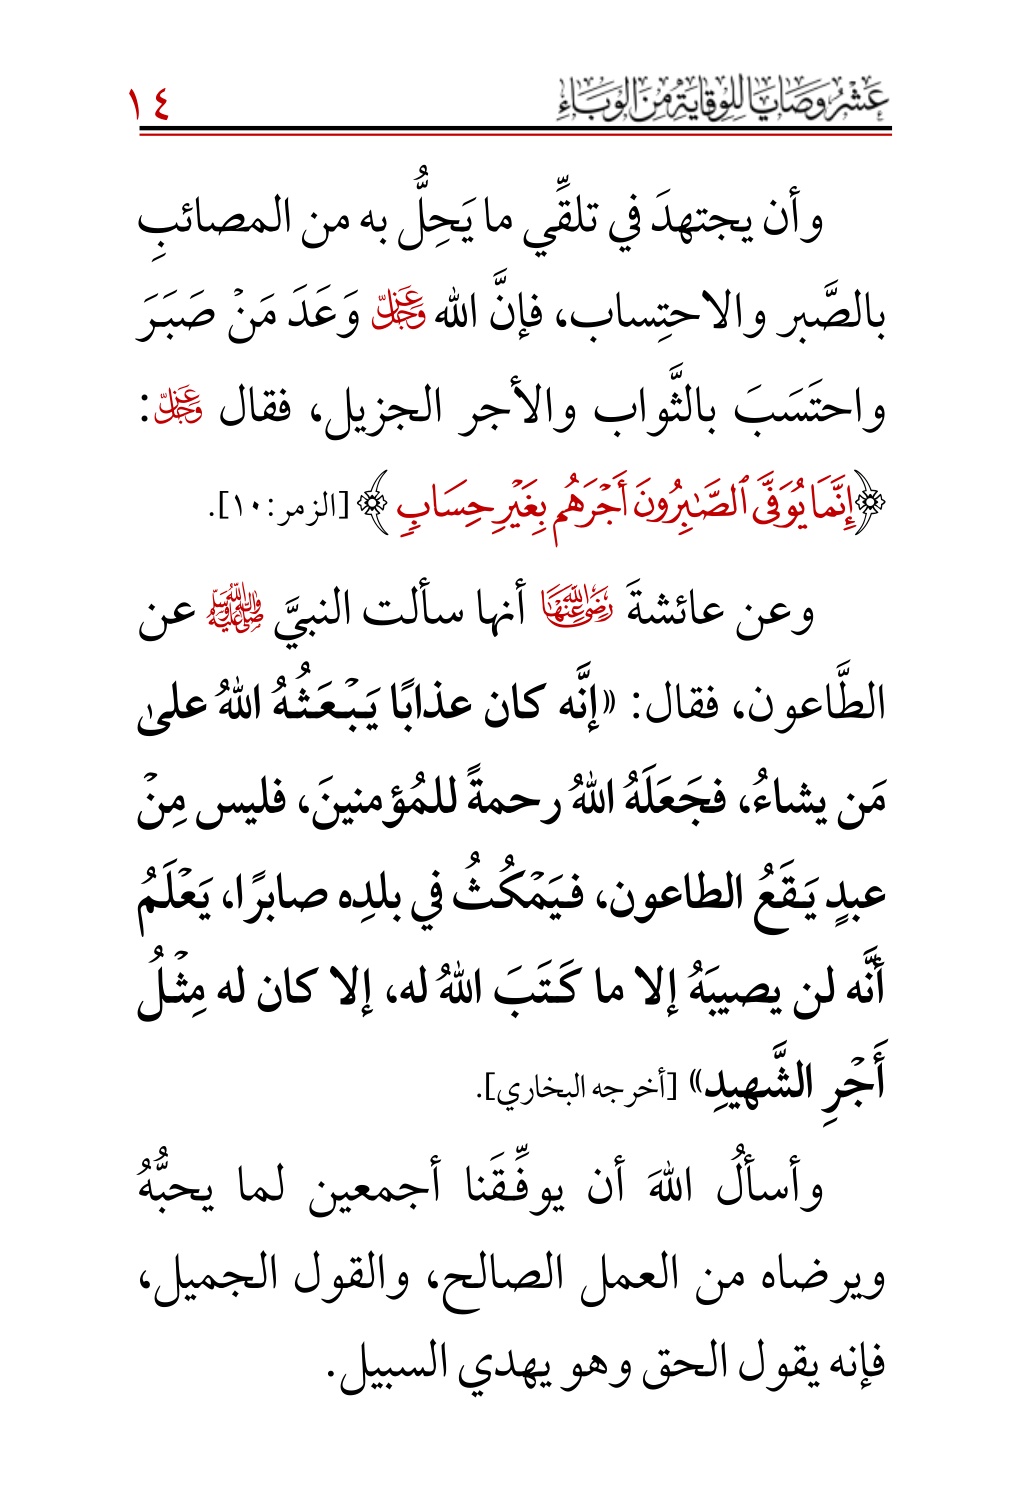 عَشْرُ وَصَايَا لِلْوِقَايَةِ مِنَ الْوَبَاءِ ١٤
وأن يجتهدَ في تلقِّي ما يَحِلُّ به من المصائبِ
بالصَّبر والاحتِساب، فإنَّ الله عَزَّ وَجَلَّ وَعَدَ مَنْ صَبَرَ
واحتَسَبَ بالثَّواب والأجر الجزيل، فقال عَزَّ وَجَلَّ:
﴿إِنَّمَا يُوَفَّى ٱلصَّـٰبِرُونَ أَجْرَهُم بِغَيْرِ حِسَابٍ﴾ [الزمر:١٠].
وعن عائشةَ رَضِيَ اللَّهُ عَنْهَا أنها سألت النبيَّ ﷺ عن
الطَّاعون، فقال: «إنَّه كان عذابًا يَبْعَثُهُ اللهُ على
مَن يشاءُ، فجَعَلَهُ اللهُ رحمةً للمُؤمنينَ، فليس مِنْ
عبدٍ يَقَعُ الطاعون، فيَمْكُثُ في بلدِه صابرًا، يَعْلَمُ
أنَّه لن يصيبَهُ إلا ما كَتَبَ اللهُ له، إلا كان له مِثْلُ
أَجْرِ الشَّهيدِ» [أخرجه البخاري].
وأسألُ اللهَ أن يوفِّقَنا أجمعين لما يحبُّهُ
ويرضاه من العمل الصالح، والقول الجميل،
فإنه يقول الحق وهو يهدي السبيل.